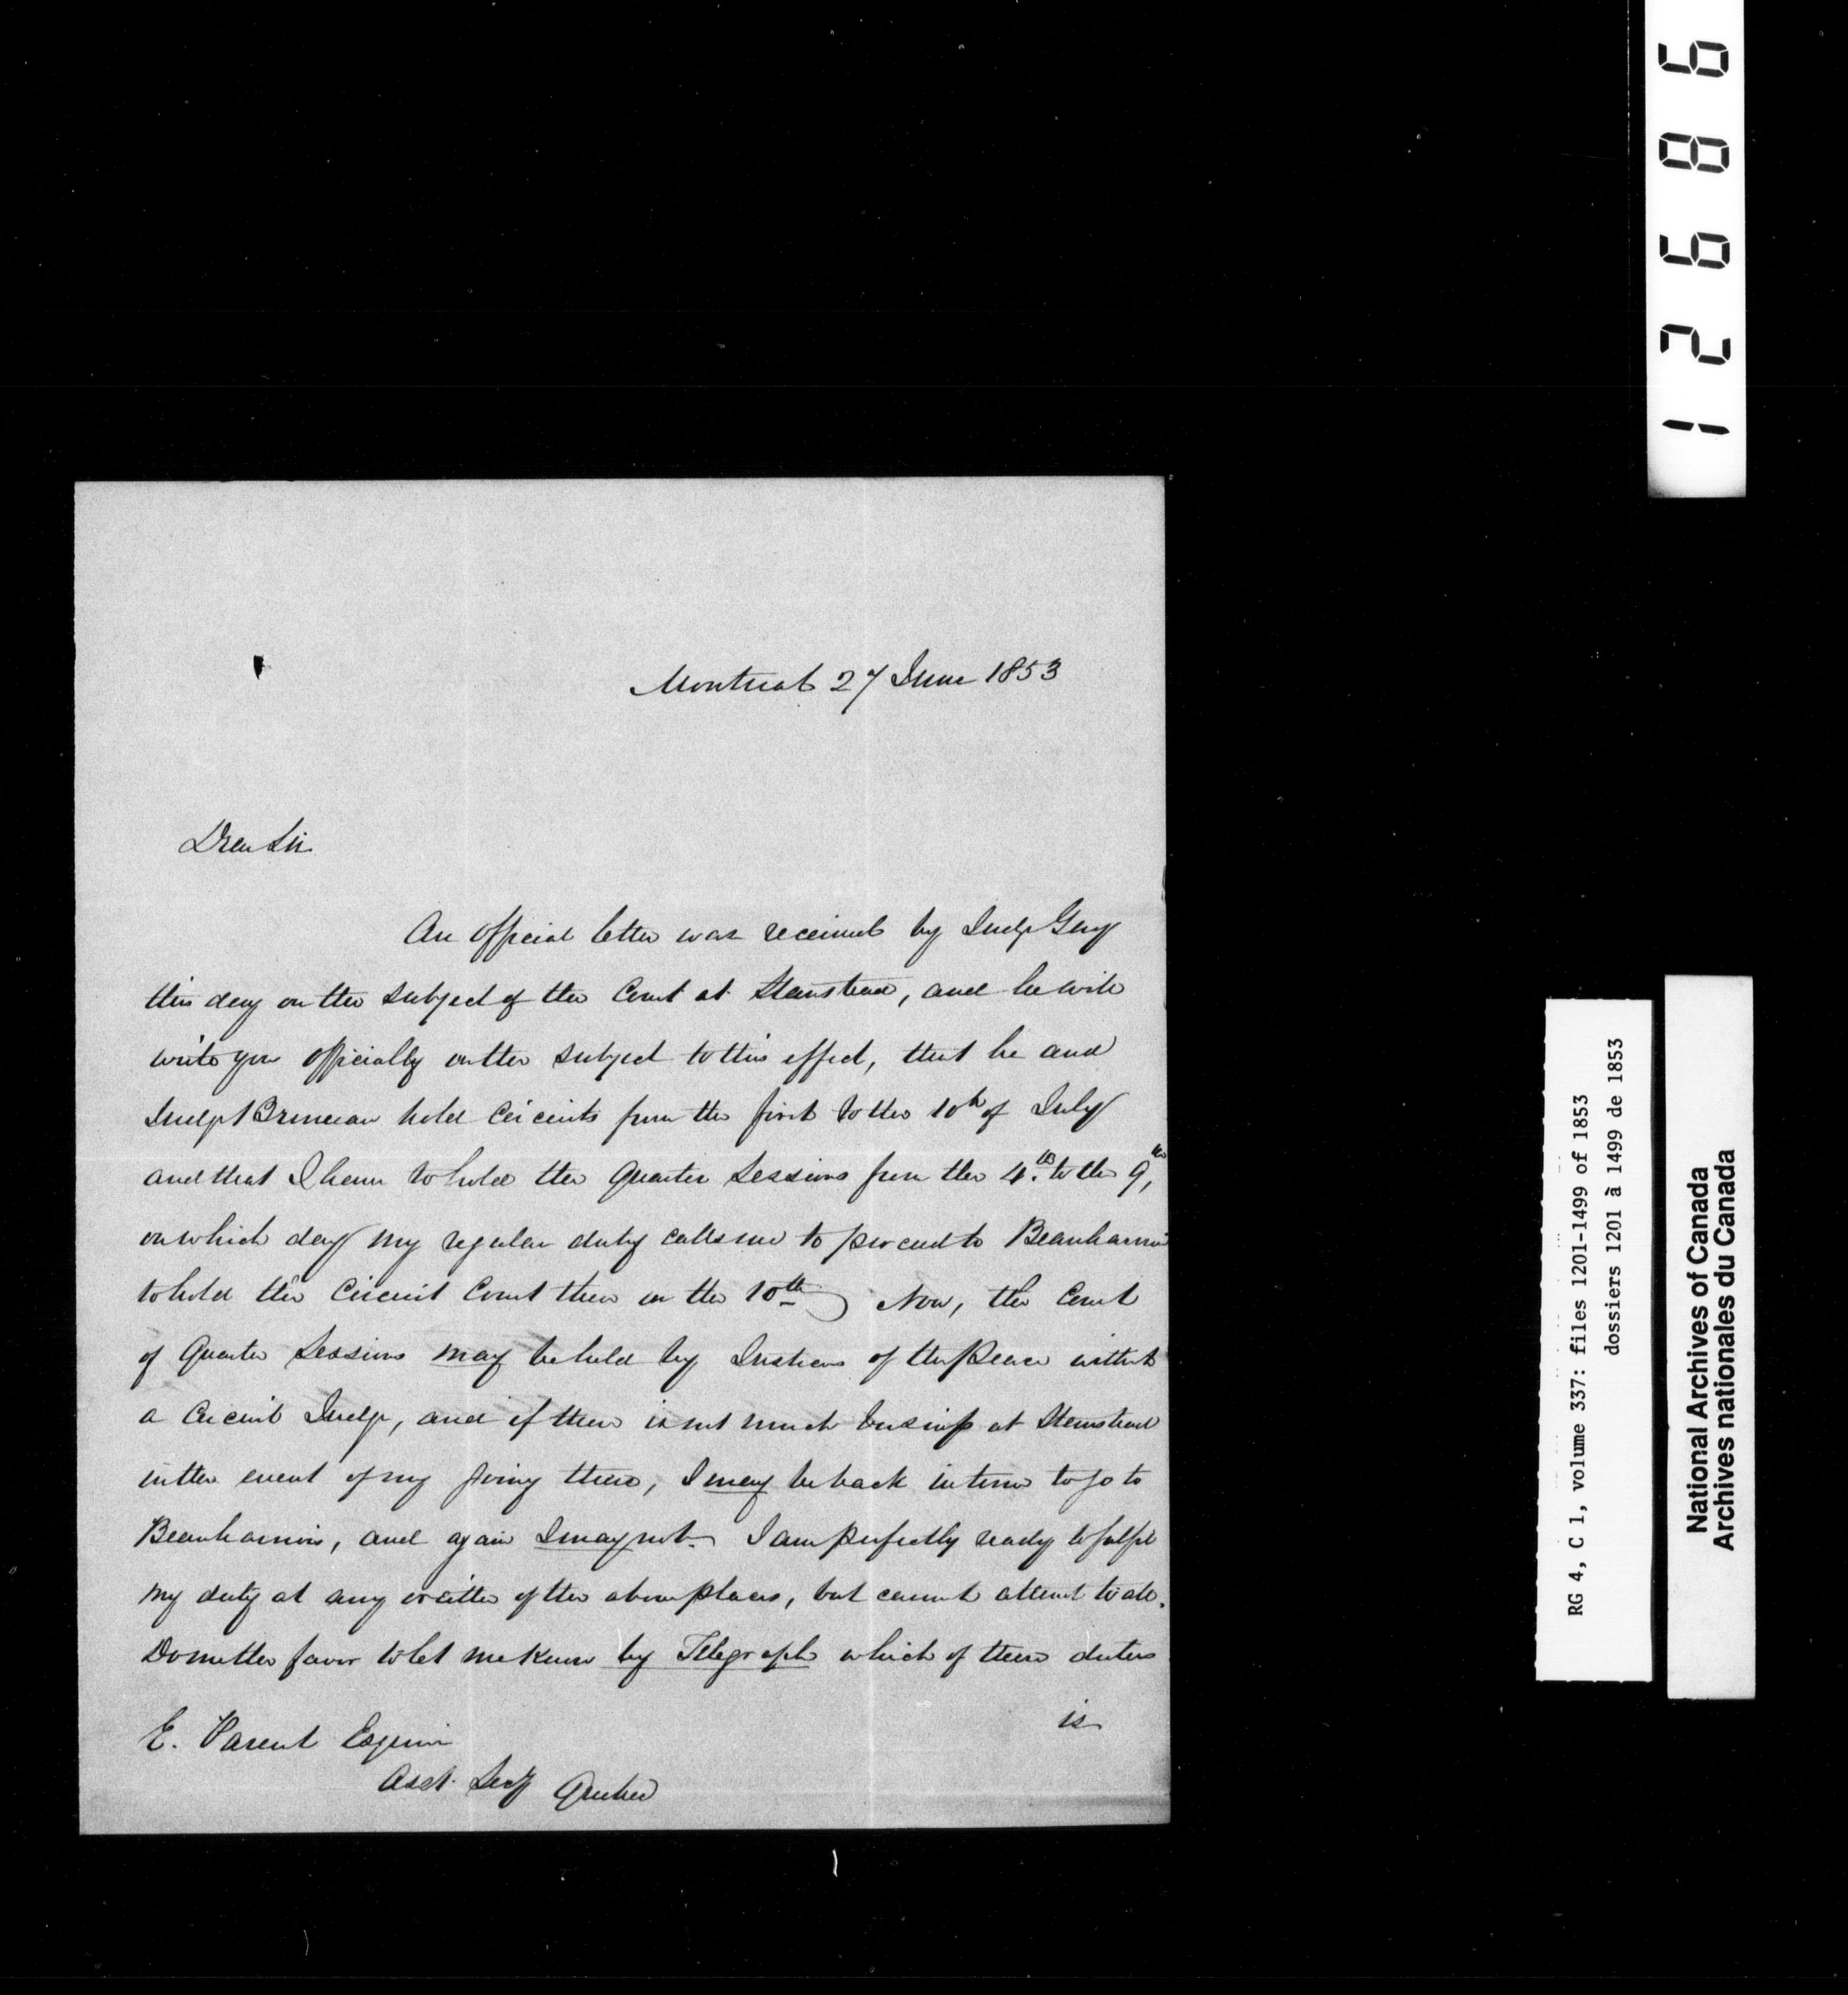 Montreal 27 June 1853
Dear Sir
An official letter was received by Judge Guy
this day on the subject of the Court at Stanstead, and he will
write you officially on the subject to this effect, that he and
Judge Bruneau hold Circuits from the first to the 10th of July
and that I have to hold the Quarter Sessions from the 4th to the 9th,
on which day my regular duty calls me to proceed to Beauharnois
to hold the Circuit Court there on the 10th. Now, the Court
of Quarter Sessions may be held by Justices of the Peace without
a Circuit Judge, and if there is not much business at Stanstead
in the event of my going there, I may be back in time to go to
Beauharnois, and again I may not. I am perfectly ready to fulfil
my duty at any or either of the above places, but cannot attend to all.
Do me the favor to let me know by Telegraph which of these duties
is
E. Parent Esquire
Asst. Secy Quebec
12686
RG 4, C 1, volume 337: files 1201-1499 of 1853
dossiers 1201 à 1499 de 1853
National Archives of Canada
Archives nationales du Canada